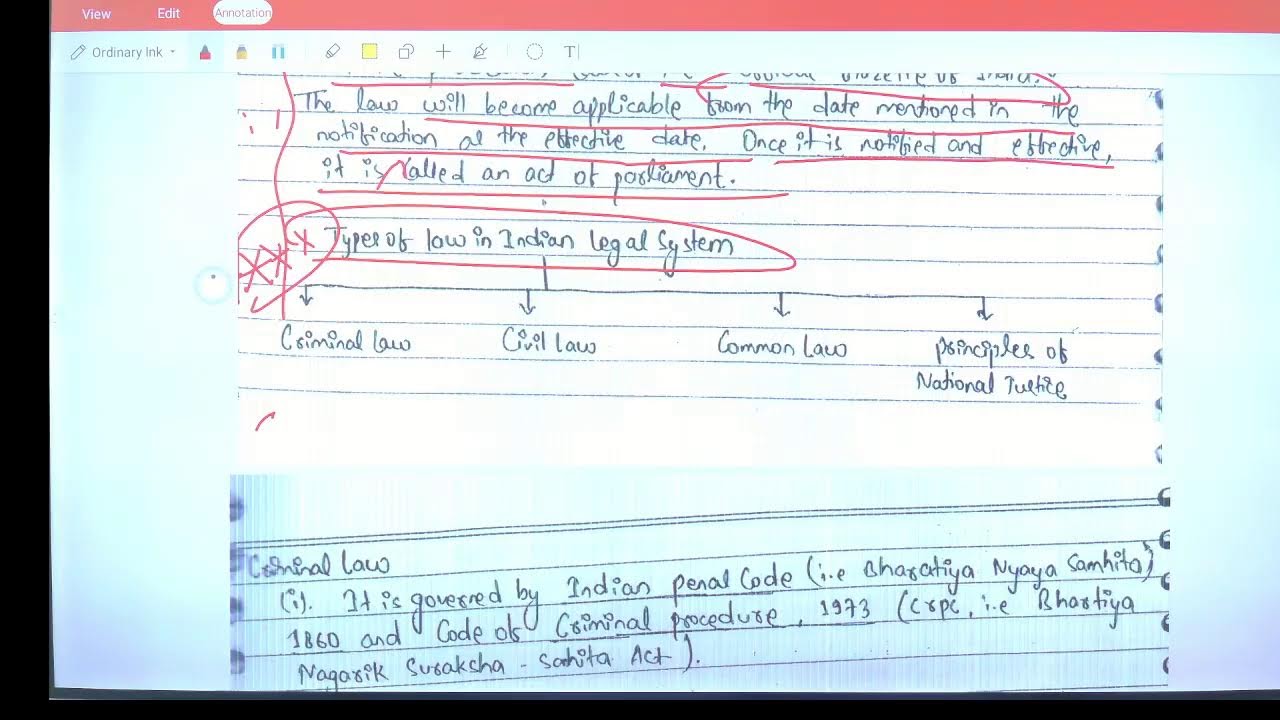 View Edit Annotation
Ordinary Ink T
The law will become applicable from the date mentioned in the
notification as the effective date. Once it is notified and effective,
it is called an act of parliament.
Types of law in Indian Legal System
Criminal law Civil law Common Law principles of
National Justice
Criminal law
(i). It is governed by Indian penal Code (i.e Bharatiya Nyaya Samhita)
1860 and Code of Criminal procedure, 1973 (crpc, i.e Bhartiya
Nagarik Suraksha - Sahita Act).